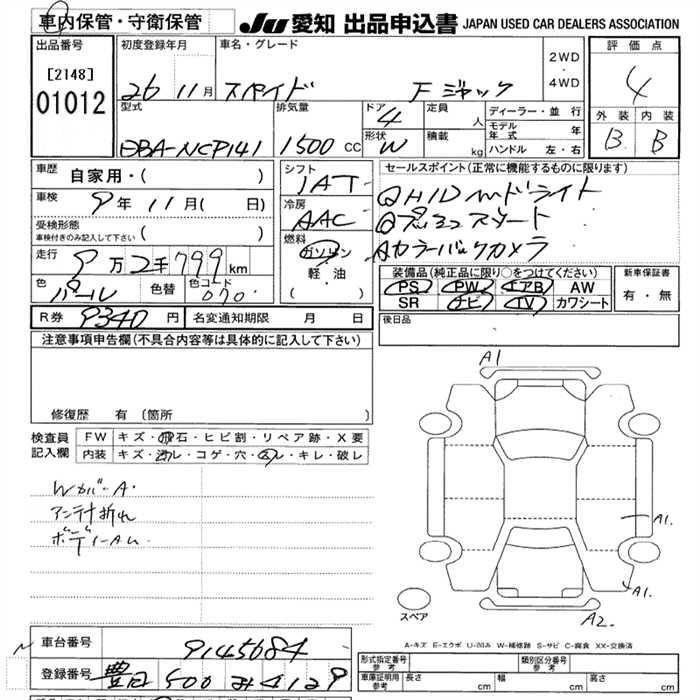 車内保管・守衛保管
JU 愛知 出品申込書 JAPAN USED CAR DEALERS ASSOCIATION
出品番号
[2148]
01012
初度登録年月
26 11月
車名・グレード
スペイド Fジャック
2WD
・
4WD
評価点
4
外装 内装
B B
型式
DBA-NCP141
排気量
1500 CC
ドア
4
形状
W
定員
人
積載
kg
ディーラー・並行
モデル年式 年
ハンドル 左・右
車歴
自家用・( )
車検
9年11月( 日)
受検形態
車検付きのみ記入して下さい ( )
走行
9万2千799km
色
パール
色替
色コード
070
シフト
IAT
冷房
AAC
燃料
ガソリン
軽・油
( )
セールスポイント(正常に機能するものに限ります)
①HID
スマート
カラーバックカメラ
装備品(純正品に限り○をつけてください)
PS PW エアB AW
SR ナビ TV カワシート
新車保証書
有・無
R券 9340円
名変通知期限 月 日
後日品
注意事項申告欄(不具合内容等は具体的に記入して下さい)
修復歴 有 〔箇所
検査員
記入欄
FW キズ・飛石・ヒビ割・リペア跡・X要
内装 キズ・汚レ・コゲ・穴・スレ・キレ・破レ
Wカバー A.
アンテナ折れ
ボディーAU
A1
A1.
A1.
A2.
スペア
A-キズ E-エクボ U-凹み W-補修跡 S-サビ C-腐食 XX-交換済
車台番号
9145684
登録番号
豊田 500 み 4129
形式指定番号
参考
類別区分番号
参考
車庫証明用
参考
長さ cm 幅 cm 高さ cm